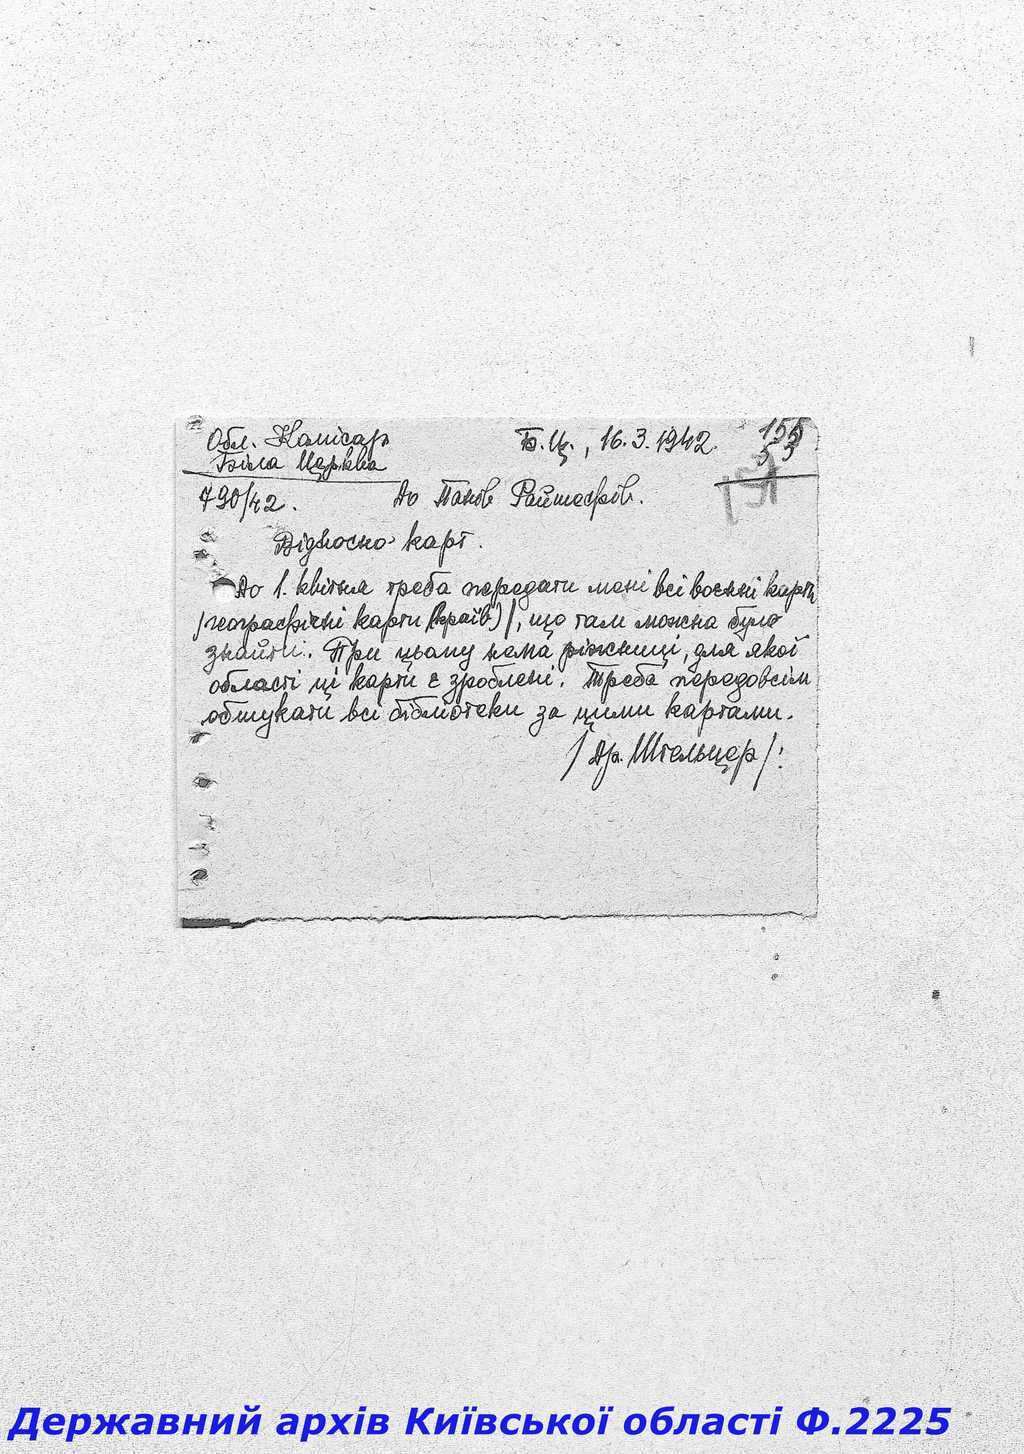 Обл. Комісар Б.Ц., 16.3.1942. 155
Біла Церква 53
790/42. До Панів Райшефів.
Відносно карт.
До 1. квітня треба передати мені всі воєнні карти
/географічні карти (країв)/, що там можна було
знайти. При цьому нема ріжниці, для якої
області ці карти є зроблені. Треба передовсім
обшукати всі бібліотеки за цими картами.
/Др. Штельцер/.
Державний архів Київської області Ф.2225